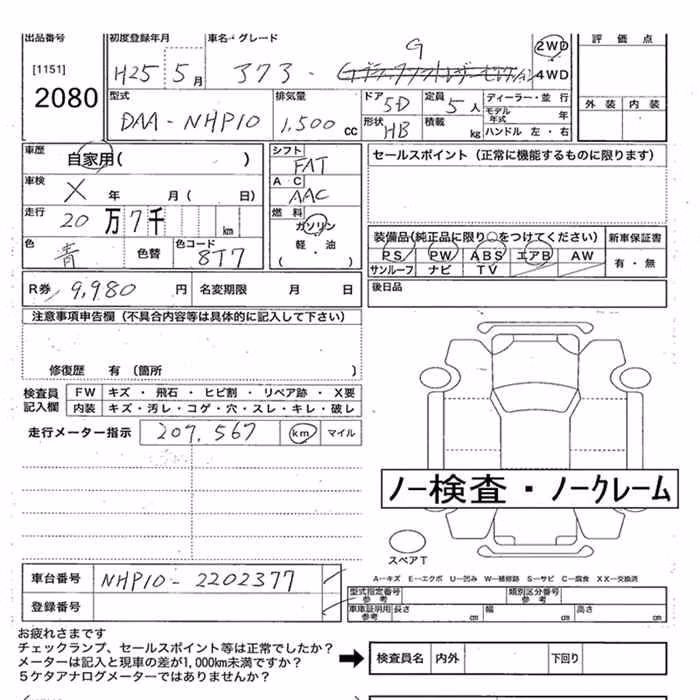 出品番号 初度登録年月 車名・グレード 評価点
[1151] 2080 H25 5月 373 - G 2WD 4WD
外装 内装
型式 排気量 ドア 5D 定員 5人 ディーラー・並行
DAA-NHP10 1,500cc 形状 HB 積載 kg モデル年式 年
ハンドル 左・右
車歴 自家用( ) シフト FAT セールスポイント(正常に機能するものに限ります)
車検 X 年 月( 日) AC AAC
走行 20万7千 km 燃料 ガソリン 軽・油 ( )
装備品(純正品に限り○をつけてください) 新車保証書
色 青 色替 色コード 8T7 PS PW ABS エアB AW 有・無
サンルーフ ナビ TV
R券 9,980円 名変期限 月 日 後日品
注意事項申告欄(不具合内容等は具体的に記入して下さい)
修復歴 有(箇所 )
検査員記入欄 FW キズ・飛石・ヒビ割・リペア跡・X要
内装 キズ・汚レ・コゲ・穴・スレ・キレ・破レ
走行メーター指示 207,567 km マイル
ノー検査・ノークレーム
スペアT
A-キズ E-エクボ U-凹み W-補修跡 S-サビ C-腐食 XX-交換済
車台番号 NHP10-2202377
型式指定番号参考 類別区分番号参考
登録番号 車庫証明用参考 長さ cm 幅 cm 高さ cm
お疲れさまです
チェックランプ、セールスポイント等は正常でしたか?
メーターは記入と現車の差が1,000km未満ですか?
5ケタアナログメーターではありませんか?
➡ 検査員名 内外 下回り